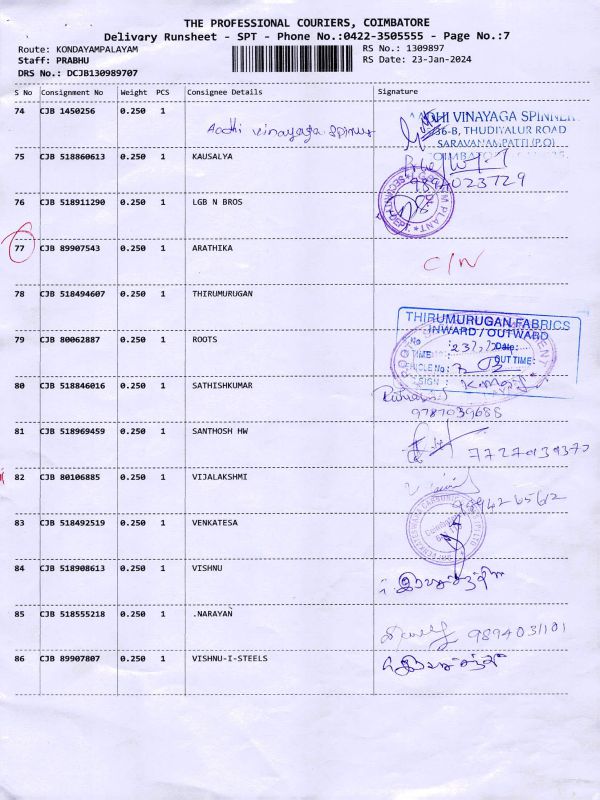 THE PROFESSIONAL COURIERS, COIMBATORE
Delivery Runsheet - SPT - Phone No.:0422-3505555 - Page No.:7
Route: KONDAYAMPALAYAM RS No.: 1309897
Staff: PRABHU RS Date: 23-Jan-2024
DRS No.: DCJB130989707
S No Consignment No Weight PCS Consignee Details Signature
74 CJB 1450256 0.250 1
Aadhi vinayaga spinners
AADHI VINAYAGA SPINNER
36-B, THUDIYALUR ROAD
SARAVANAMPATTI (P.O)
75 CJB 518860613 0.250 1 KAUSALYA
9894023729
76 CJB 518911290 0.250 1 LGB N BROS
77 CJB 89907543 0.250 1 ARATHIKA
C/N
78 CJB 518494607 0.250 1 THIRUMURUGAN
THIRUMURUGAN FABRICS
INWARD / OUTWARD
79 CJB 80062887 0.250 1 ROOTS
No Date:
TIME: OUT TIME:
VEHICLE No:
SIGN :
80 CJB 518846016 0.250 1 SATHISHKUMAR
9787039688
81 CJB 518969459 0.250 1 SANTHOSH HW
82 CJB 80106885 0.250 1 VIJALAKSHMI
9894265612
83 CJB 518492519 0.250 1 VENKATESA
84 CJB 518908613 0.250 1 VISHNU
85 CJB 518555218 0.250 1 .NARAYAN
9894031101
86 CJB 89907807 0.250 1 VISHNU-I-STEELS